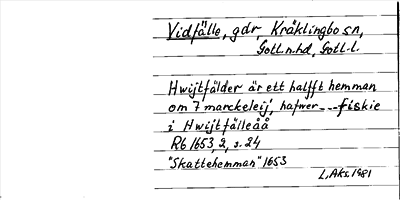 Vidfälle, gdr, Kräklingbo sn,
Gotl.n.hd, Gotl.l.
Hwijtfälder är ett halfft hemman
om 7 marckeleij, hafwer --fiskie
i Hwijtfälleåå
R6 1653,2, s.24
"Skattehemman" 1653
L, Aks. 1981